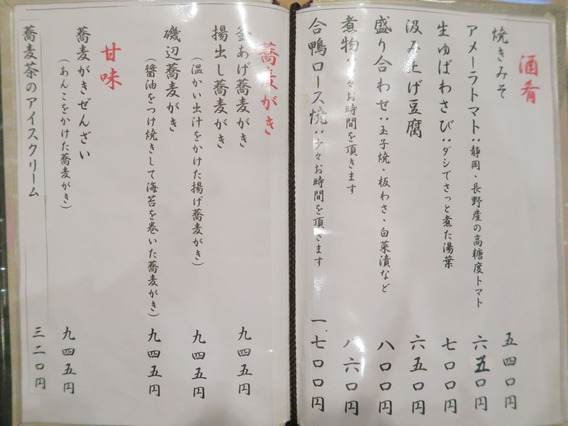 酒肴
焼きみそ 五四〇円
アメーラトマト：静岡・長野産の高糖度トマト 六五〇円
生ゆばわさび：ダシでさっと煮た湯葉 七〇〇円
汲み上げ豆腐 六五〇円
盛り合わせ：玉子焼・板わさ・白菜漬など 八〇〇円
煮物：少々お時間を頂きます 八六〇円
合鴨ロース焼：少々お時間を頂きます 一、七〇〇円
蕎麦がき
釜あげ蕎麦がき 九四五円
揚出し蕎麦がき
（温かい出汁をかけた揚げ蕎麦がき） 九四五円
磯辺蕎麦がき
（醤油をつけ焼きして海苔を巻いた蕎麦がき） 九四五円
甘味
蕎麦がきぜんざい
（あんこをかけた蕎麦がき） 九四五円
蕎麦茶のアイスクリーム 三二〇円